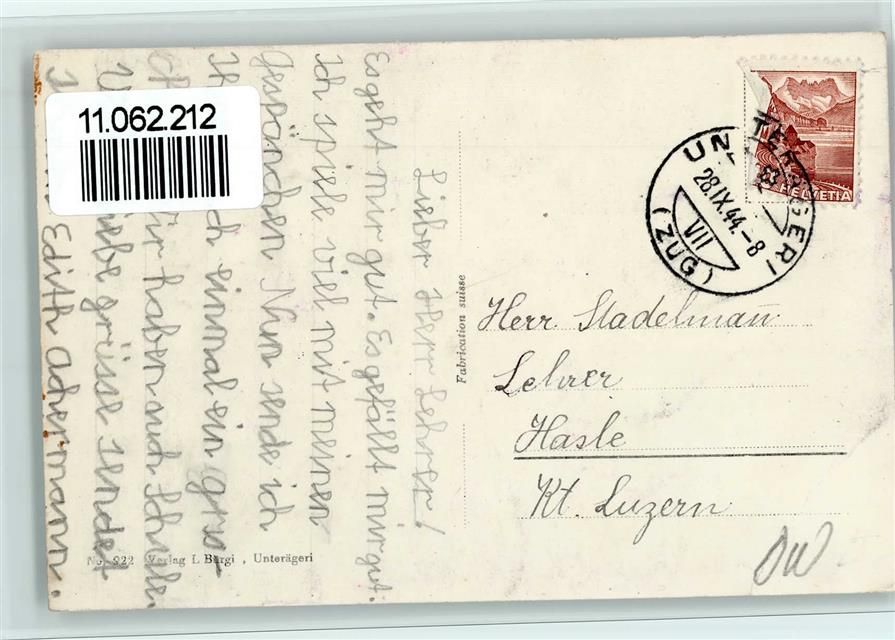 11.062.212
Lieber Herr Lehrer!
Es geht mir gut. Es gefällt mir gut.
Ich spiele viel mit meinen
Gespänchen. Nun sende ich
ch einmal ein grus-
Wir haben auch Schule.
liebe grüsse sendet
Edith Achermann.
Fabrication suisse
UNTERÄGERI
28.IX.44.-8
VII
(ZUG)
HELVETIA
Herr Stadelmañ
Lehrer
Hasle
Kt. Luzern
OW
No. 922 Verlag I. Bürgi, Unterägeri